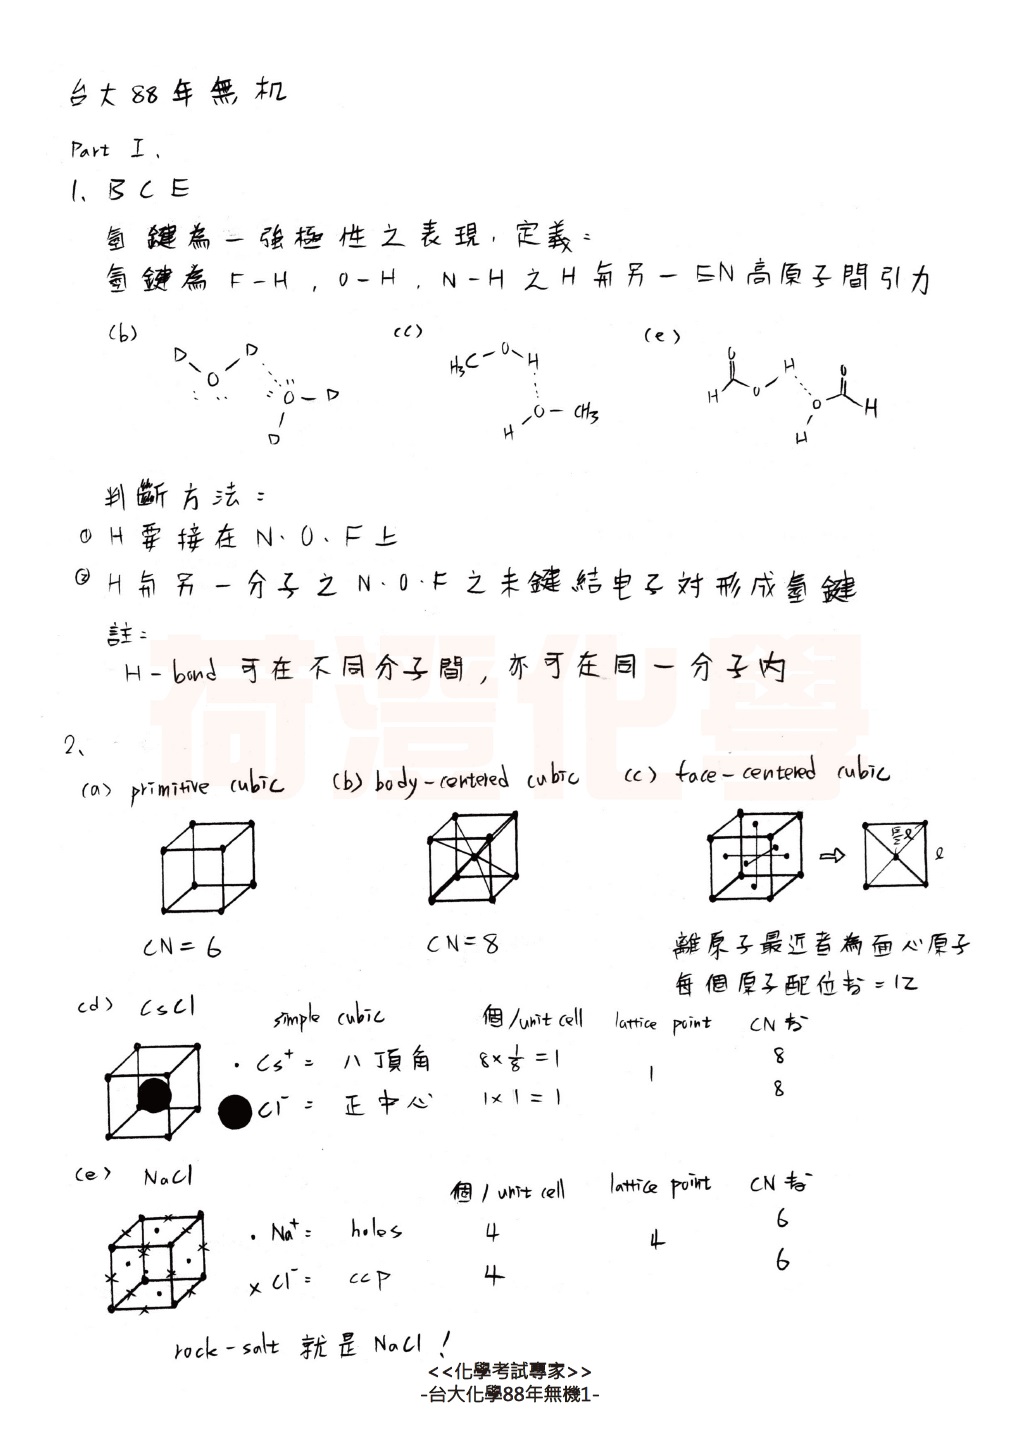 台大88年無机
Part I.
1. B C E
氫鍵為一強極性之表現，定義：
氫鍵為 F-H, O-H, N-H 之 H 與另一 EN 高原子間引力
(b) (c) (e)
D D O O D D
H₃C-O-H O-CH₃ H
O H H O O O H H
判斷方法：
① H 要接在 N、O、F 上
② H 與另一分子之 N、O、F 之未鍵結电子対形成氫鍵
註：
H-bond 可在不同分子間，亦可在同一分子內
荷澄化學
2、
(a) primitive cubic (b) body-centered cubic (c) face-centered cubic
⇒ √2/2 ℓ ℓ
CN=6 CN=8 離原子最近者為面心原子
每個原子配位數=12
(d) CsCl simple cubic 個/unit cell lattice point CN數
• Cs⁺= 八頂角 8×1/8=1 1 8
Cl⁻= 正中心 1×1=1 8
(e) NaCl 個/unit cell lattice point CN數
• Na⁺= holes 4 4 6
× Cl⁻= ccp 4 6
rock-salt 就是 NaCl！
<<化學考試專家>>
-台大化學88年無機1-